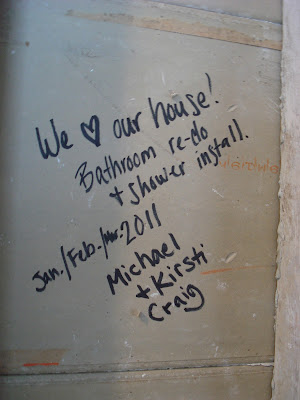 We ♥ our house!
Bathroom re-do
+ shower install.
Jan./Feb./Mar. 2011
Michael
+ Kirsti
Craig